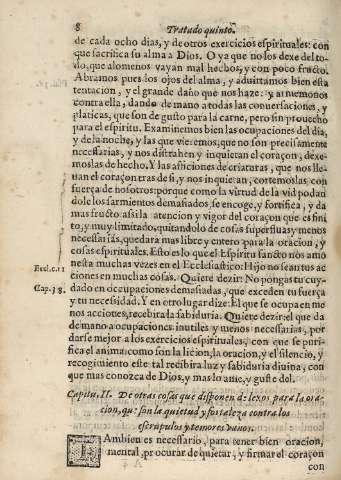 8
Tratado quinto.
de cada ocho dias, y de otros exercicios espirituales: con
que sacrifica su alma a Dios. O ya que no los dexe del to-
do, que alomenos vayan mal hechos, y con poco fructo.
Abramos pues los ojos del alma, y aduirtamos bien esta
tentacion, y el grande daño que nos haze: y armemonos
contra ella, dando de mano a todas las conuersaciones, y
platicas, que son de gusto para la carne, pero sin prouecho
para el espiritu. Examinemos bien las ocupaciones del dia,
y de la noche, y las que vieremos, que no son precisamente
necessarias, y nos distrahen y inquietan el coraçon, dexe-
moslas de hecho. Y las aficiones de criaturas, que nos lle-
uan el coraçon tras de si, y nos inquietan, cortemoslas con
fuerça de nosotros: porque como la virtud de la vid podan
dole los sarmientos demasiados, se encoge, y fortifica, y da
mas fructo: assi la atencion y vigor del coraçon que es fini
to, y muy limitado, quitandolo de cosas superfluas y menos
necessarias, quedara mas libre y entero para la oracion, y
cosas espirituales. Esto es lo que el Espiritu sancto nos amo
nesta muchas vezes en el Ecclesiastico: Hijo no sean tus ac
Eccl. c. 11
ciones en muchas cosas. Quiere dezir: No pongas tu cuy-
Cap. 38.
dado en occupaciones demasiadas, que exceden tu fuerça
y tu necessidad. Y en otro lugar dize: El que se ocupa en me
nos acciones, recebira la sabiduria. Quiere dezir: el que da
de mano a ocupaciones inutiles y menos necessarias, por
darse mejor a los exercicios espirituales, con que se puri-
fica el anima: como son la licion, la oracion, y el silencio, y
recogimiento este tal recibira luz y sabiduria diuina, con
que mas conozca de Dios, y mas lo ame, y guste del.
Capitu. II. De otras cosas que disponen de lexos para la ora-
cion, que son la quietud y fortaleza contra los
escrupulos y temores vanos.
TAmbien es necessario, para tener bien oracion,
mental, procurar de quietar, y firmar el coraçon
con